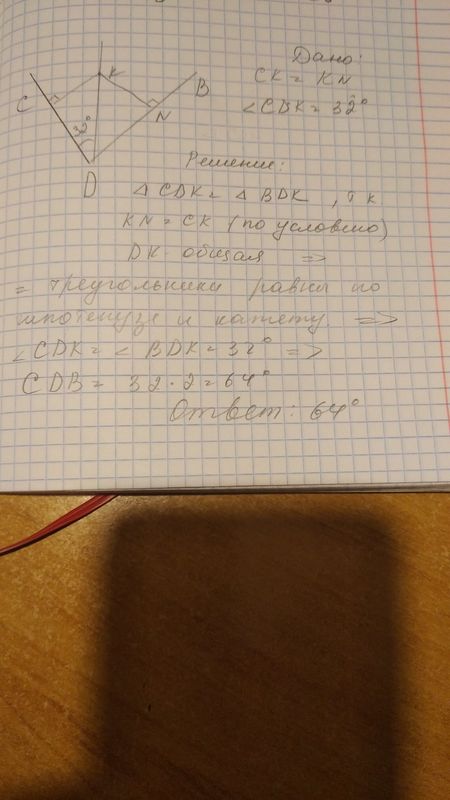 Дано:
CK = KN
∠CDK = 32°
C
K
B
N
32°
D
Решение:
△ CDK = △ BDK , т к
KN = CK (по условию)
DK - общая =>
= треугольники равны по
гипотенузе и катету. =>
∠CDK = ∠ BDK = 32° =>
CDB = 32 · 2 = 64°
Ответ: 64°